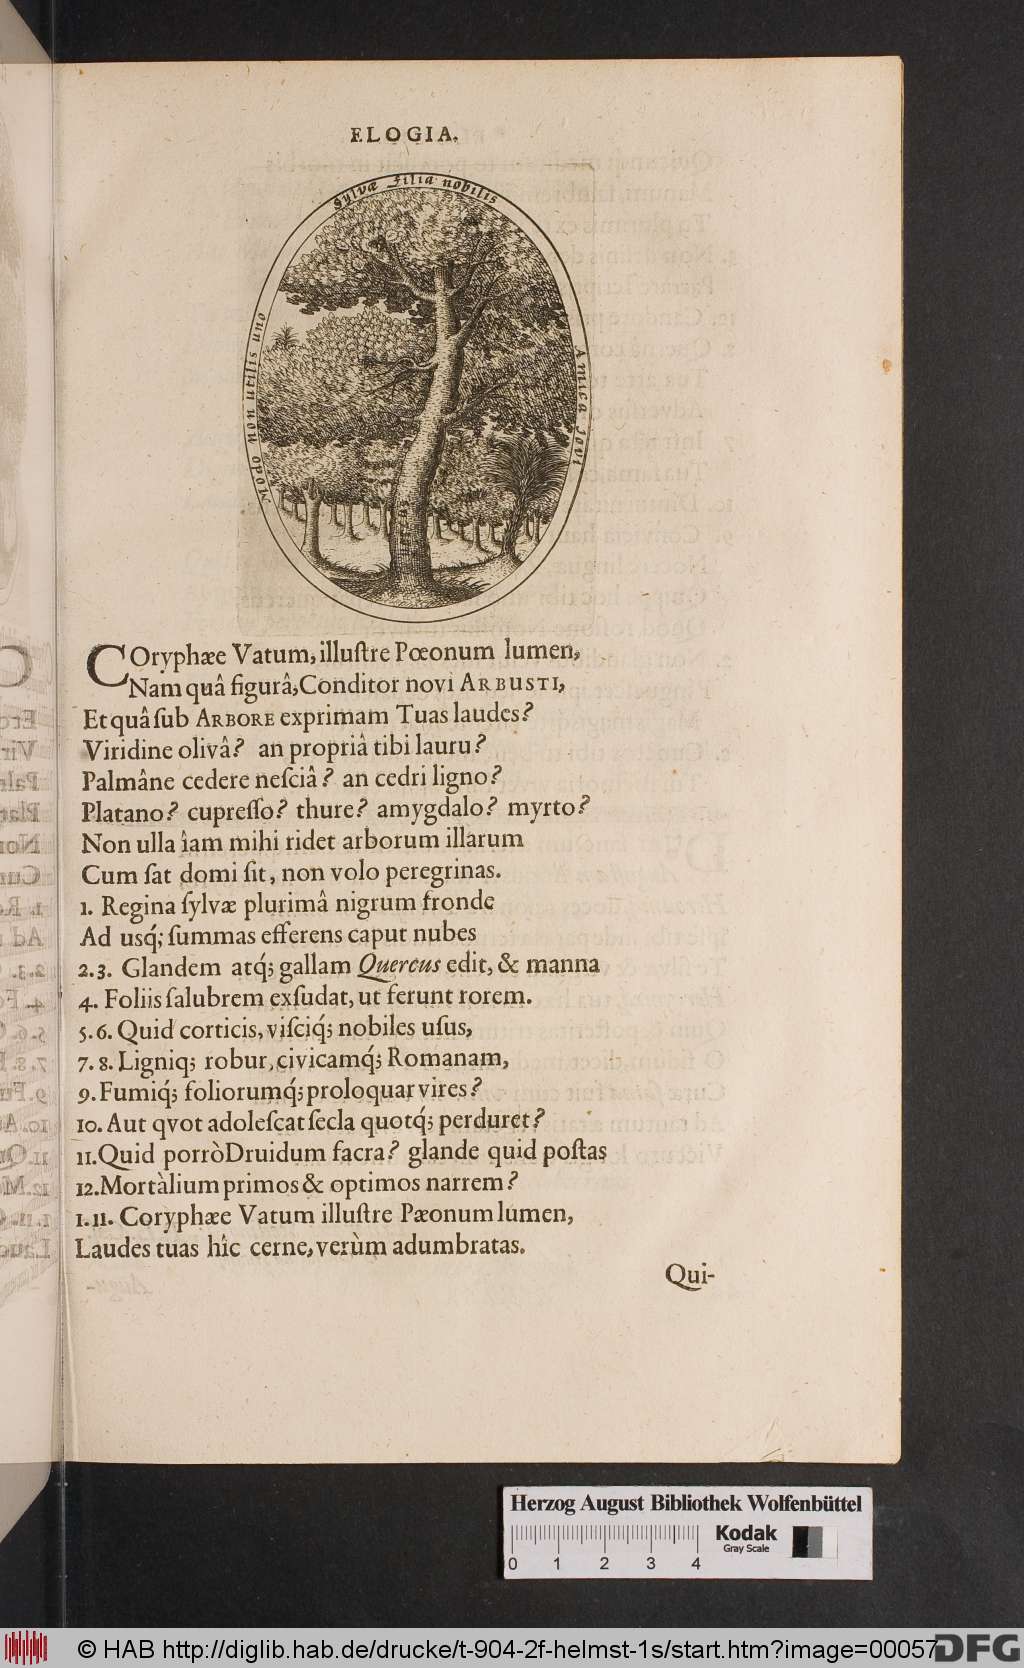 ELOGIA.
Sylvæ filia nobilis
Amica Jovi
Modo non utilis uno
COryphæe Vatum, illuſtre Pœonum lumen,
Nam quâ figurâ, Conditor novi ARBUSTI,
Et quâ ſub ARBORE exprimam Tuas laudes?
Viridine olivâ? an propriâ tibi lauru?
Palmâne cedere neſciâ? an cedri ligno?
Platano? cupreſſo? thure? amygdalo? myrto?
Non ulla îam mihi ridet arborum illarum
Cum ſat domi ſit, non volo peregrinas.
1. Regina ſylvæ plurimâ nigrum fronde
Ad usq́; ſummas efferens caput nubes
2.3. Glandem atq́; gallam Quercus edit, & manna
4. Foliis ſalubrem exſudat, ut ferunt rorem.
5.6. Quid corticis, viſciq́; nobiles uſus,
7.8. Ligniq; robur, civicamq́; Romanam,
9. Fumiq́; foliorumq́; proloquar vires?
10. Aut qvot adoleſcat ſecla quotq́; perduret?
11. Quid porrò Druidum ſacra? glande quid poſtas
12. Mortàlium primos & optimos narrem?
1.11. Coryphæe Vatum illuſtre Pæonum lumen,
Laudes tuas hîc cerne, verùm adumbratas.
Qui-
Herzog August Bibliothek Wolfenbüttel
Kodak
Gray Scale
0 1 2 3 4
© HAB http://diglib.hab.de/drucke/t-904-2f-helmst-1s/start.htm?image=00057
DFG